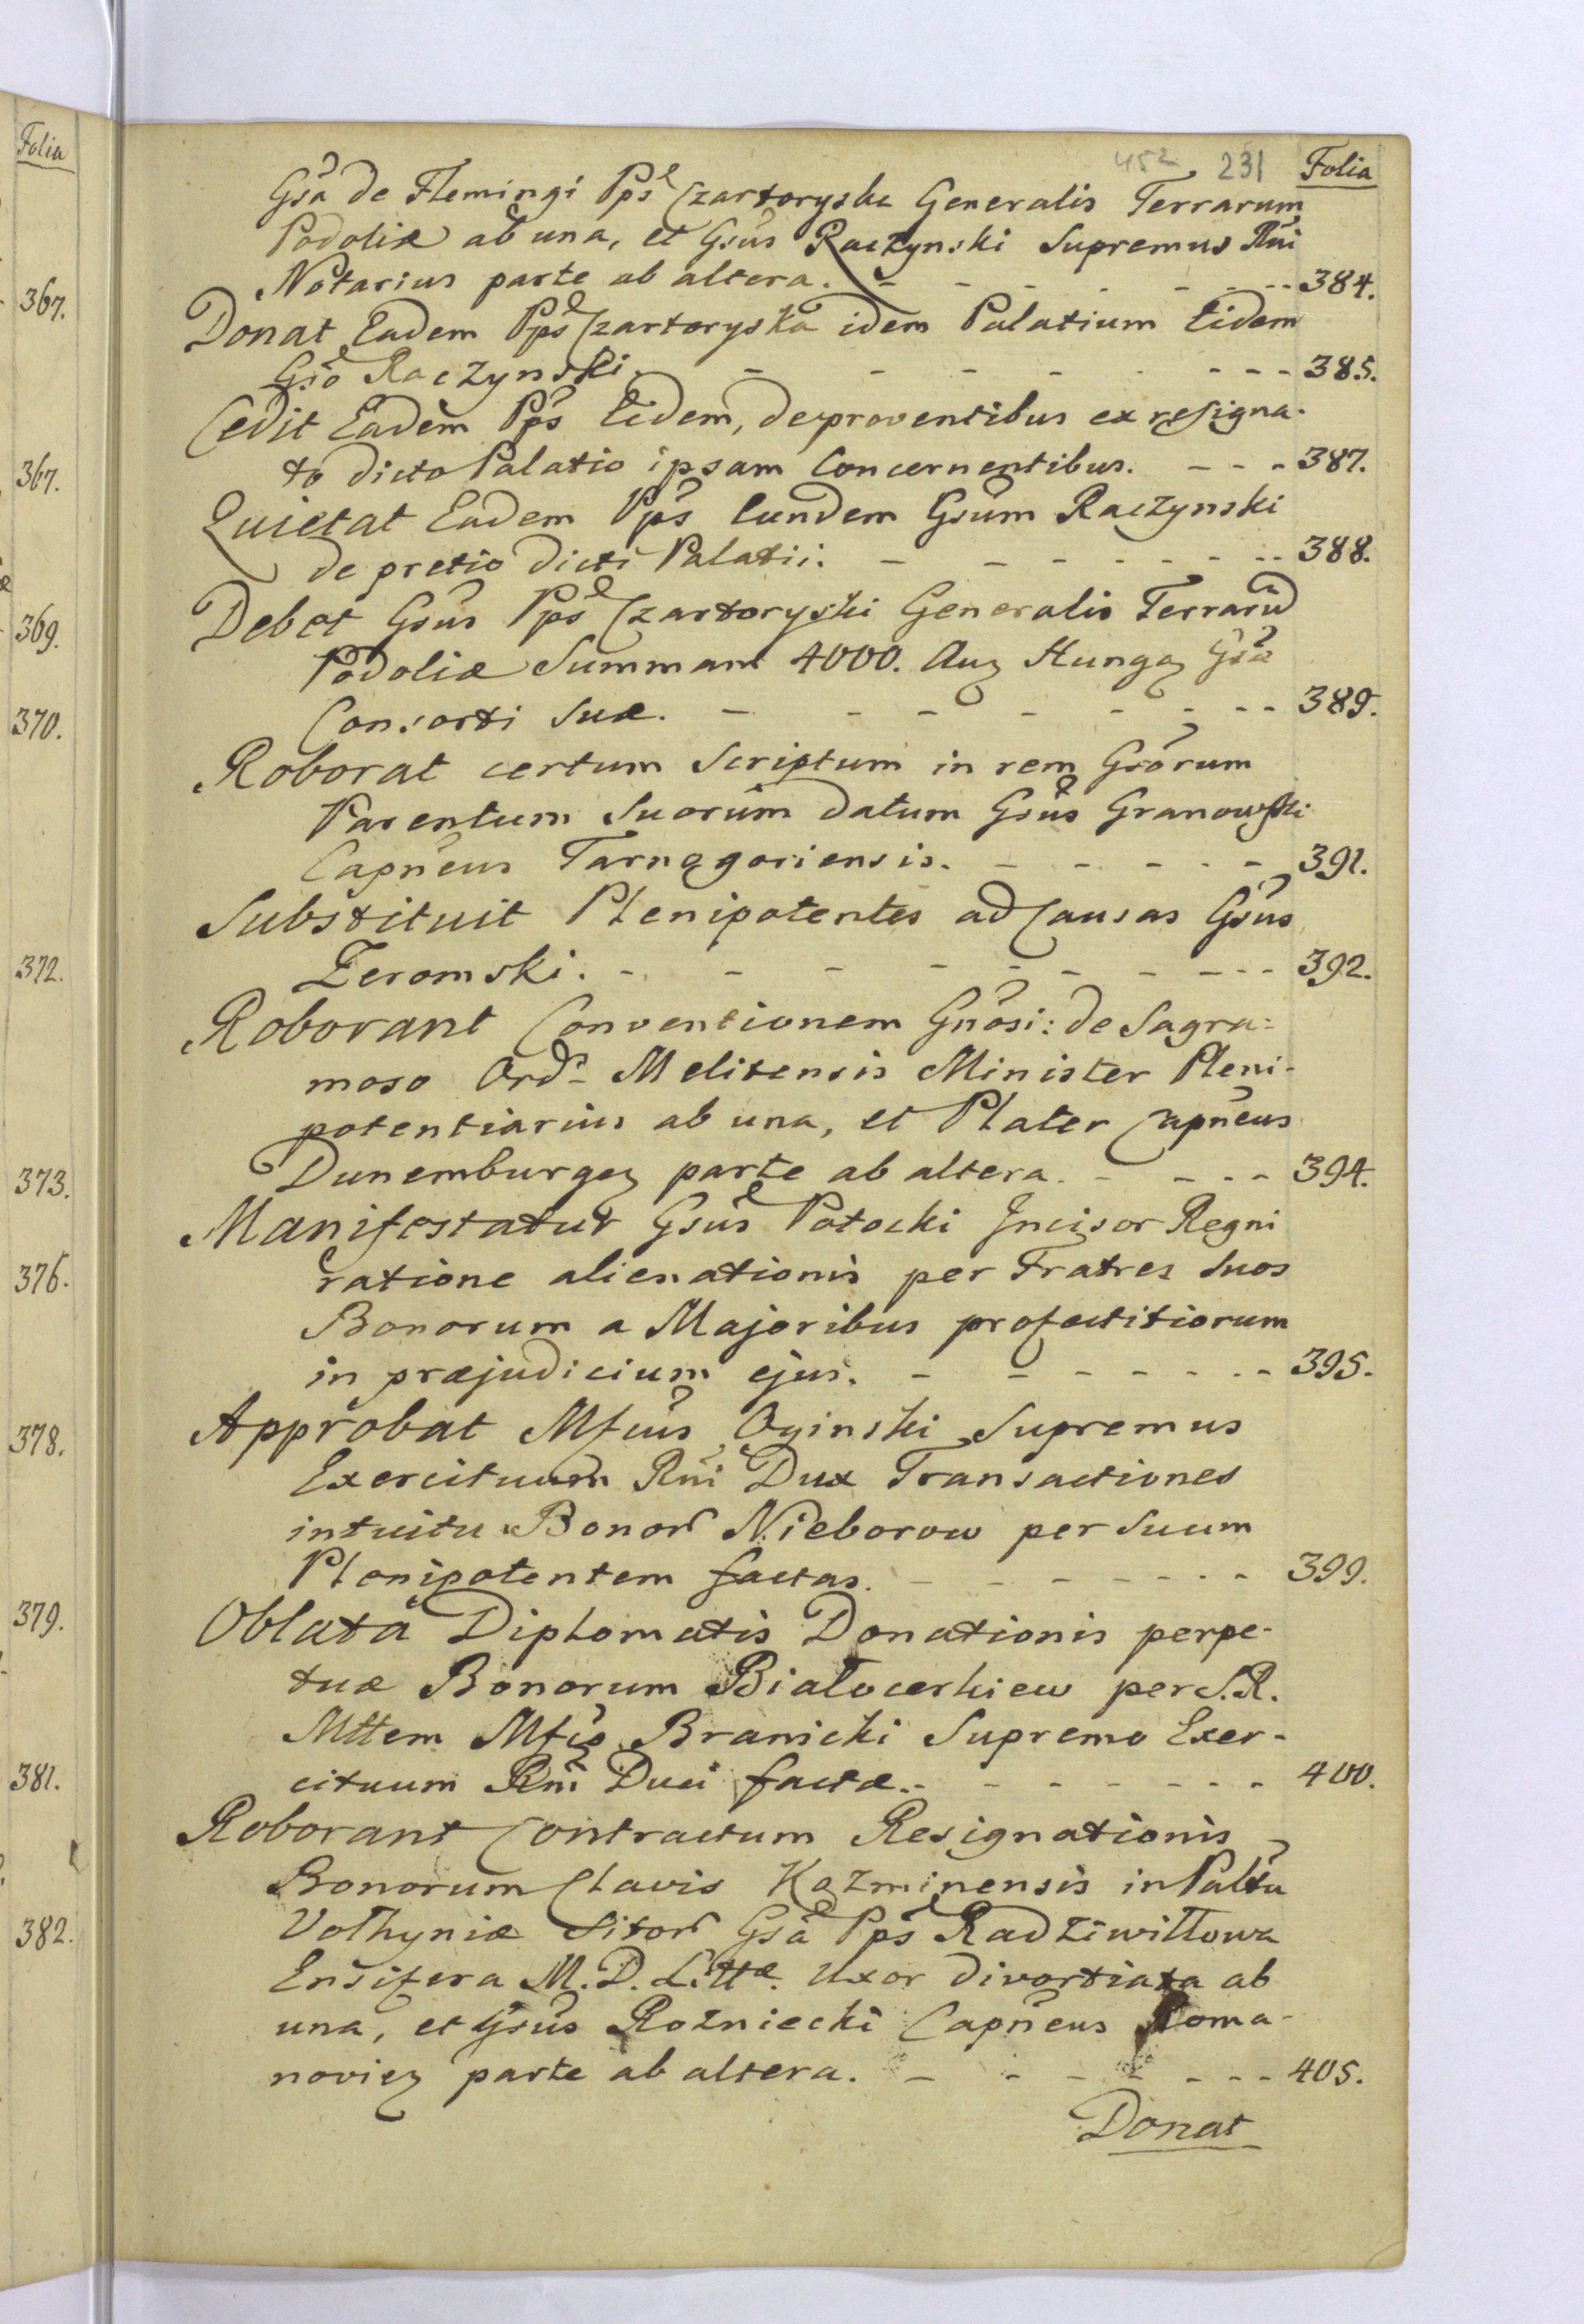 Folia
367.
367.
369.
370.
372.
373.
376.
378.
379.
381.
382.
452 231 Folia
Gsa de Flemingi Pps Czartoryska Generalis Terrarum
Podoliæ ab una, et Gsus Raczynski Supremus Rni
Notarius parte ab altera. - - - - - - - 384.
Donat Eadem Pps Czartoryska idem Palatium Eidem
Gso Raczynski. - - - - - - - - 385.
Cedit Eadem Pps Eidem, de proventibus ex resigna-
to dicto Palatio ipsam Concernentibus. - - - 387.
Quietat Eadem Pps Eundem Gsum Raczynski
de pretio dicti Palatii. - - - - - - - 388.
Debet Gsus Pps Czartoryski Generalis Terraru
Podoliæ Summam 4000. Aur Hungar Gsæ
Consorti Suæ. - - - - - - - - 389.
Roborat certum Scriptum in rem Gsorum
Parentum Suorum datum Gsus Granowski
Capneus Tarnogoriensis. - - - - - 391.
Substituit Plenipotentes ad Causas Gsus
Zeromski. - - - - - - - - - - 392.
Roborant Conventionem Gnosi: de Sagra=
moso Ordis Melitensis Minister Pleni-
potentiarius ab una, et Plater Capneus
Dunemburgez parte ab altera. - - - - 394.
Manifestatur Gsus Potocki Incisor Regni
ratione alienationis per Fratres Suos
Bonorum a Majoribus profectitiorum
in præjudicium ejus. - - - - - - - 395.
Approbat Mfcus Oginski Supremus
Exercituum Rni Dux Transactiones
intuitu Bonor Nieborow per Suum
Plenipotentem factas. - - - - - - - 399.
Oblata Diplomatis Donationis perpe-
tuæ Bonorum Białocerkiew per S.R.
Mttem Mfco Branicki Supremo Exer-
cituum Rni Duci factæ. - - - - - - - 400.
Roborant Contractum Resignationis
Bonorum Clavis Kozminensis in Paltu
Volhyniæ sitor Gsa Pps Radziwiłłowa
Ensifera M. D. Littæ. Uxor divortiata ab
una, et Gsus Rozniecki Capneus Roma-
noviez parte ab altera. - - - - - - - 405.
Donat